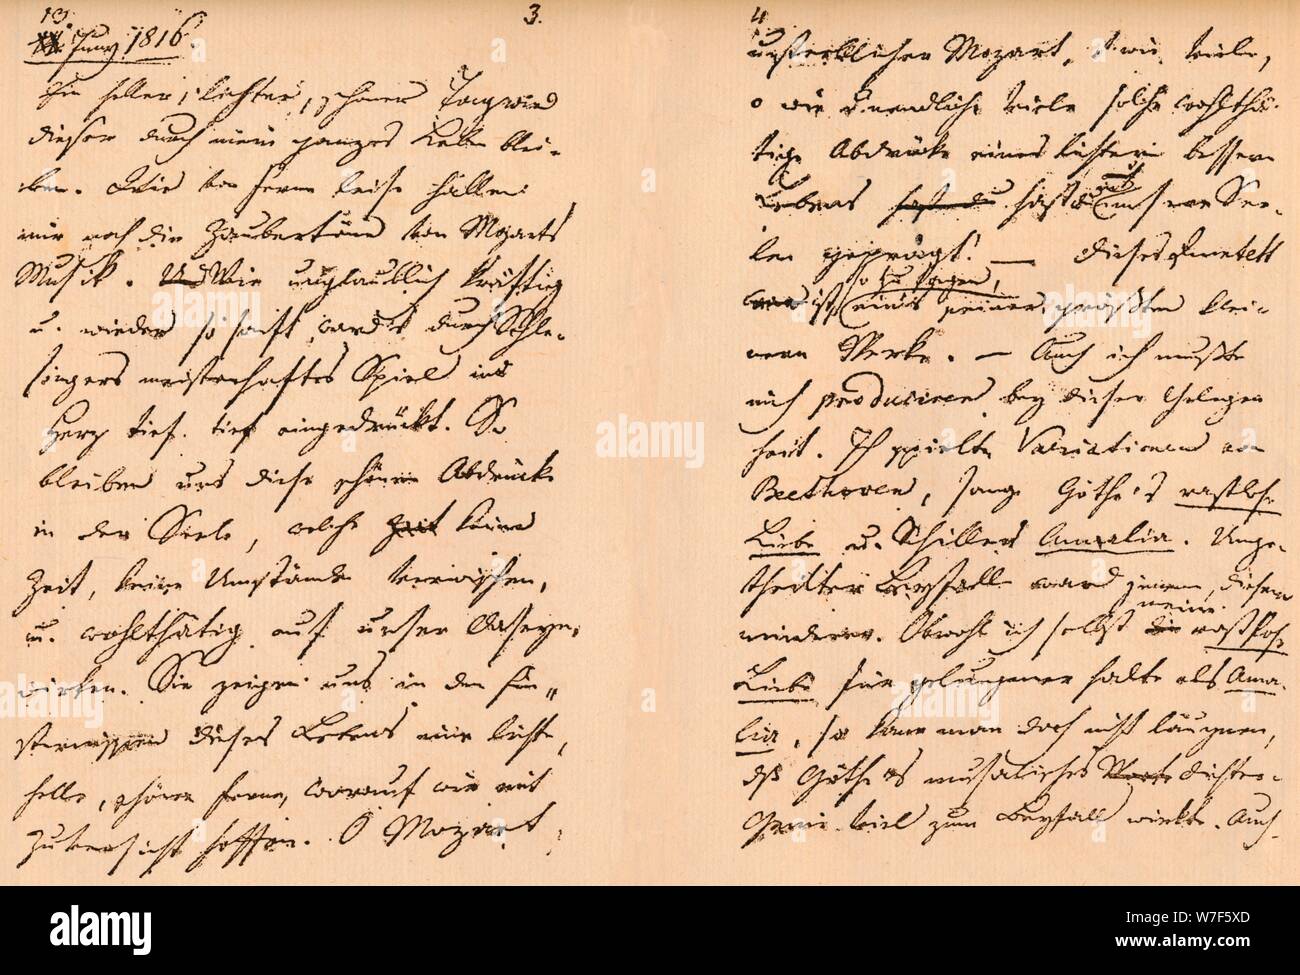 13.
Juny 1816.
3.
Ein heller, lichter, schöner Tag wird
dieser durch mein ganzes Leben blei-
ben. Wie von ferne leise hallen
mir noch die Zaubertöne von Mozarts
Musik. Und Wie unglaublich kräftig
u. wieder so sanft, ward's durch Schle-
singers meisterhaftes Spiel ins
Herz tief, tief eingedrückt. So
bleiben uns diese schöne Abdrücke
in der Seele, welche Zeit keine
Zeit, keine Umstände verwischen,
u. wohlthätig auf unser Daseyn,
wirken. Sie zeigen uns in den Fin-
sternissen dieses Lebens eine lichte,
helle, schöne Ferne, worauf wir mit
Zuversicht hoffen. O Mozart,
4.
unsterblicher Mozart, wie viele,
o wie unendlich viele solche wohlthä-
tige Abdrücke eines lichtern bessern
Lebens hast du hast du in unsere See-
len geprägt! — Dieses Quintett
so zu sagen,
war ist eines seiner größten klei-
nern Werke. — Auch ich mußte
mich produciren bey dieser Gelegen
heit. Ich spielte Variationen von
Beethoven, sang Göthe's rastlose
Liebe u. Schillers Amalia. Unge-
theilter Beyfall ward jenem, diesem
meine
minderer. Obwohl ich selbst die rastlose
Liebe für gelungener halte als Ama-
lia, so kann man doch nicht läugnen,
dß Göthe's musicalisches Dichter-
Genie viel zum Beyfall wirkte. Auch
alamy
Image ID: W7F5XD
www.alamy.com